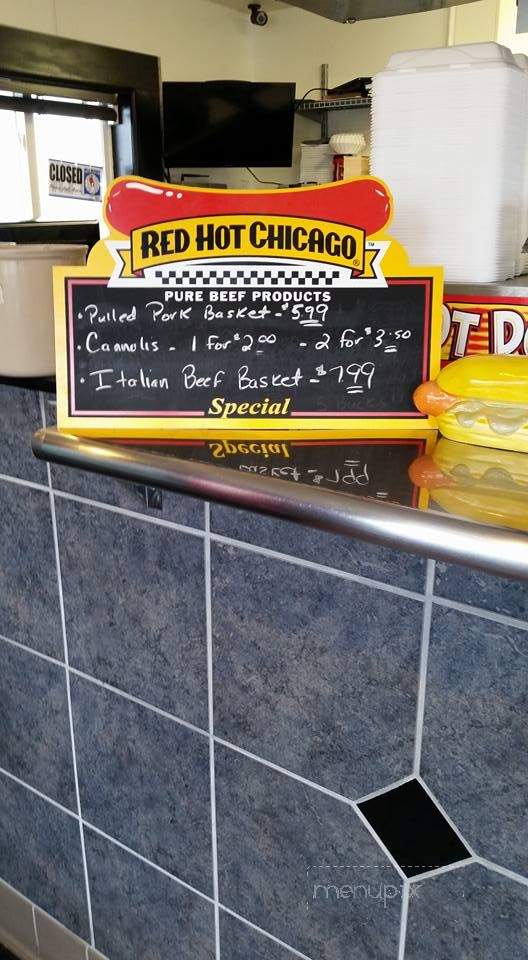 CLOSED
RED HOT CHICAGO
TM
®
PURE BEEF PRODUCTS
• Pulled Pork Basket - $5.99
• Cannolis - 1 for $2.00 - 2 for $3.50
• Italian Beef Basket - $7.99
Special
OT DO
Special
menupix